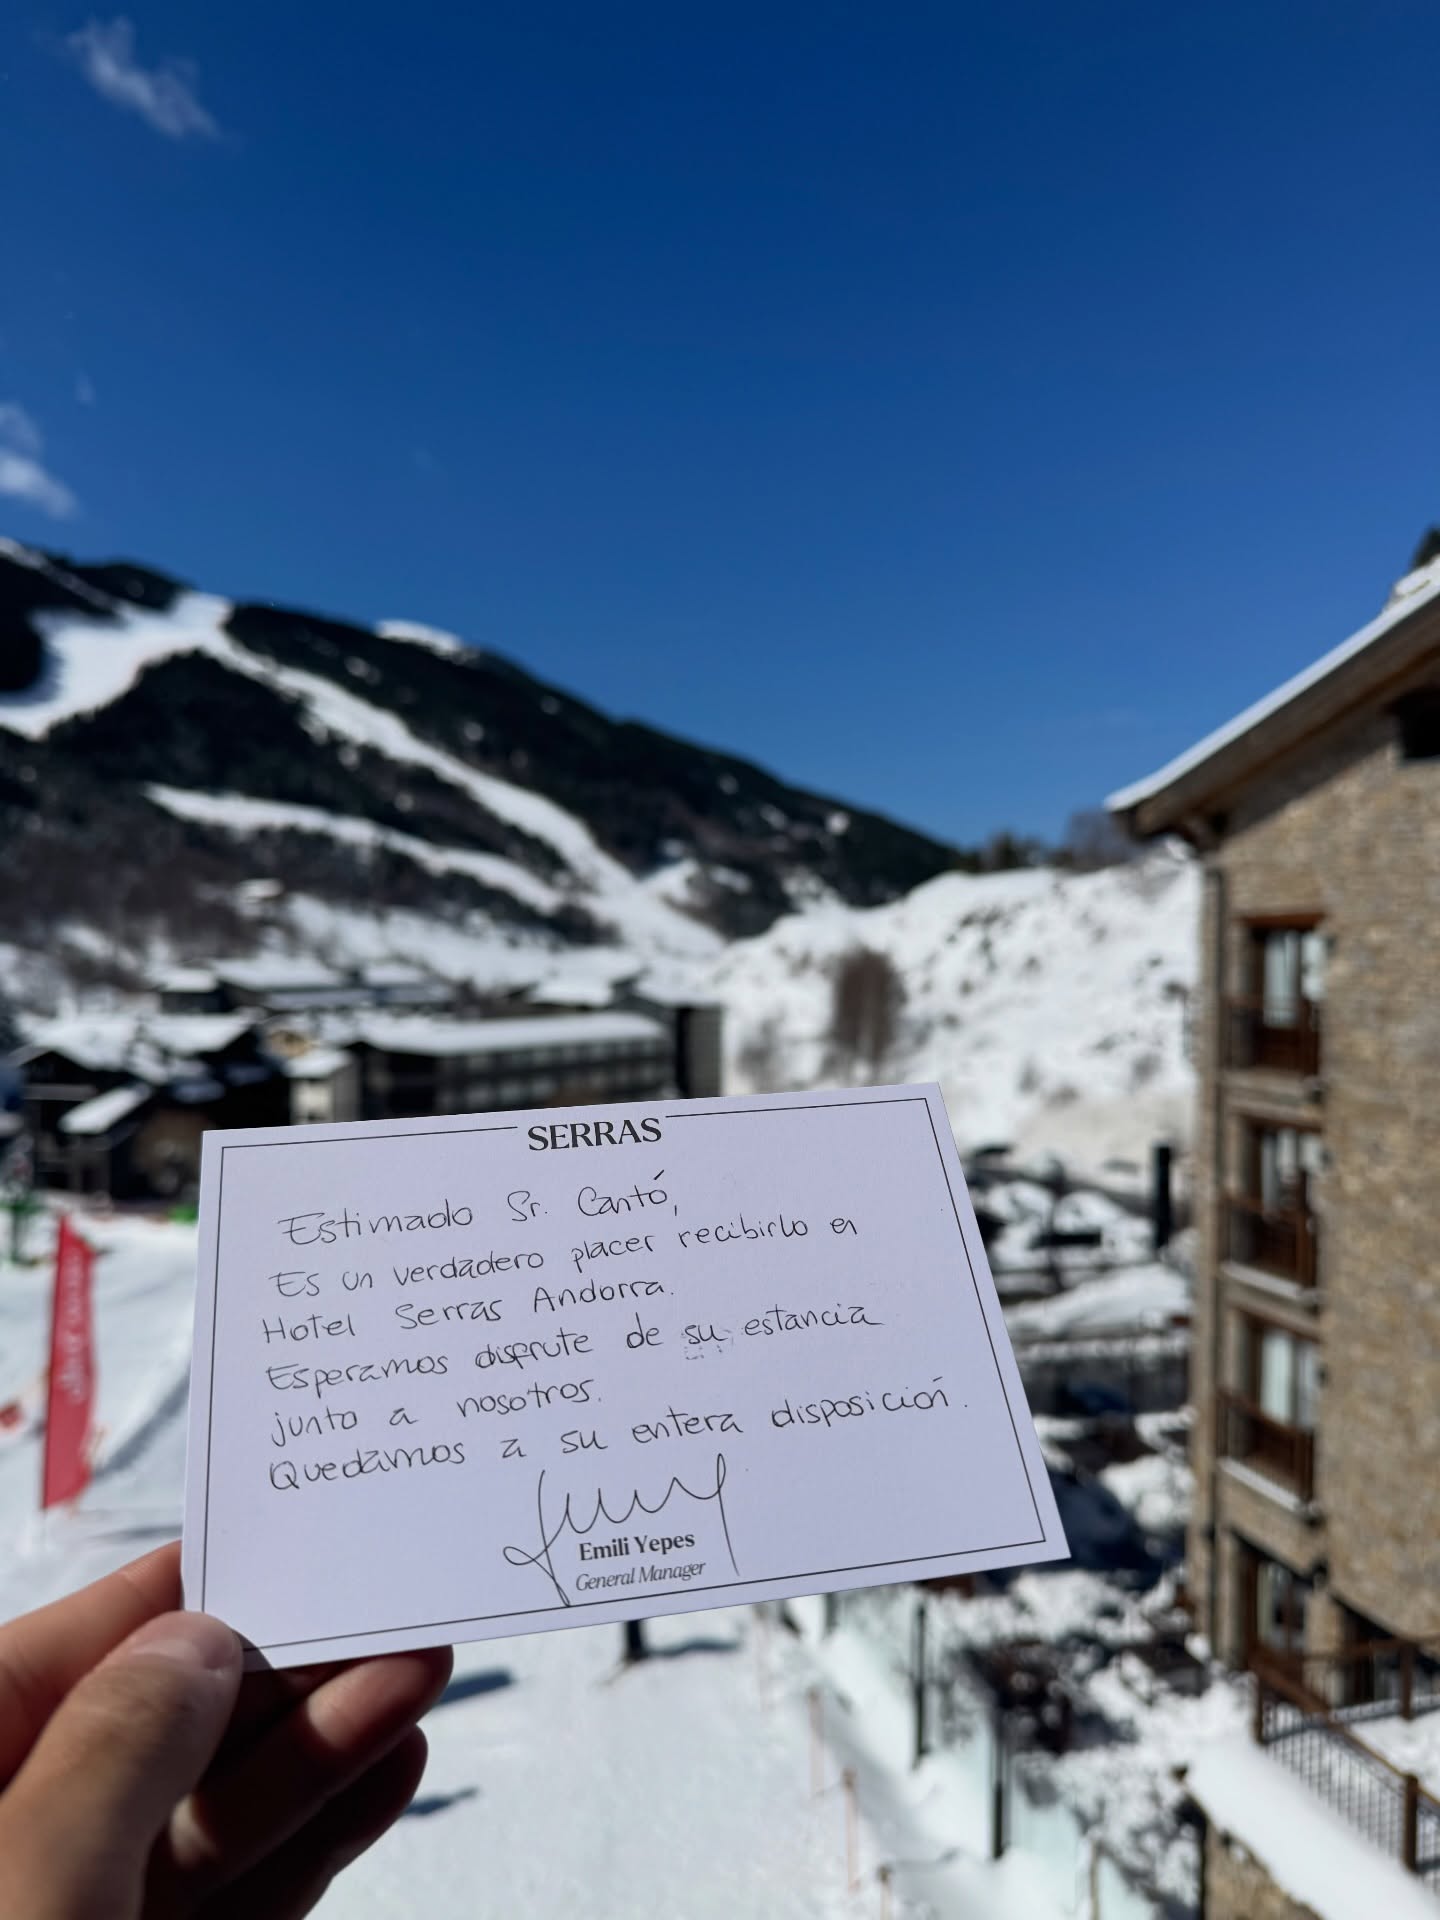 SERRAS
Estimado Sr. Cantó,
Es un verdadero placer recibirlo en
Hotel Serras Andorra.
Esperamos disfrute de su estancia
junto a nosotros.
Quedamos a su entera disposición.
Emili Yepes
General Manager